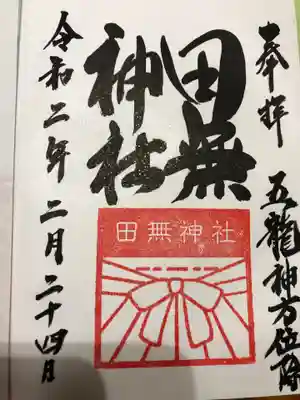 奉拝
五龍神方位除
田無
神社
田無神社
令和二年 二月二十四日